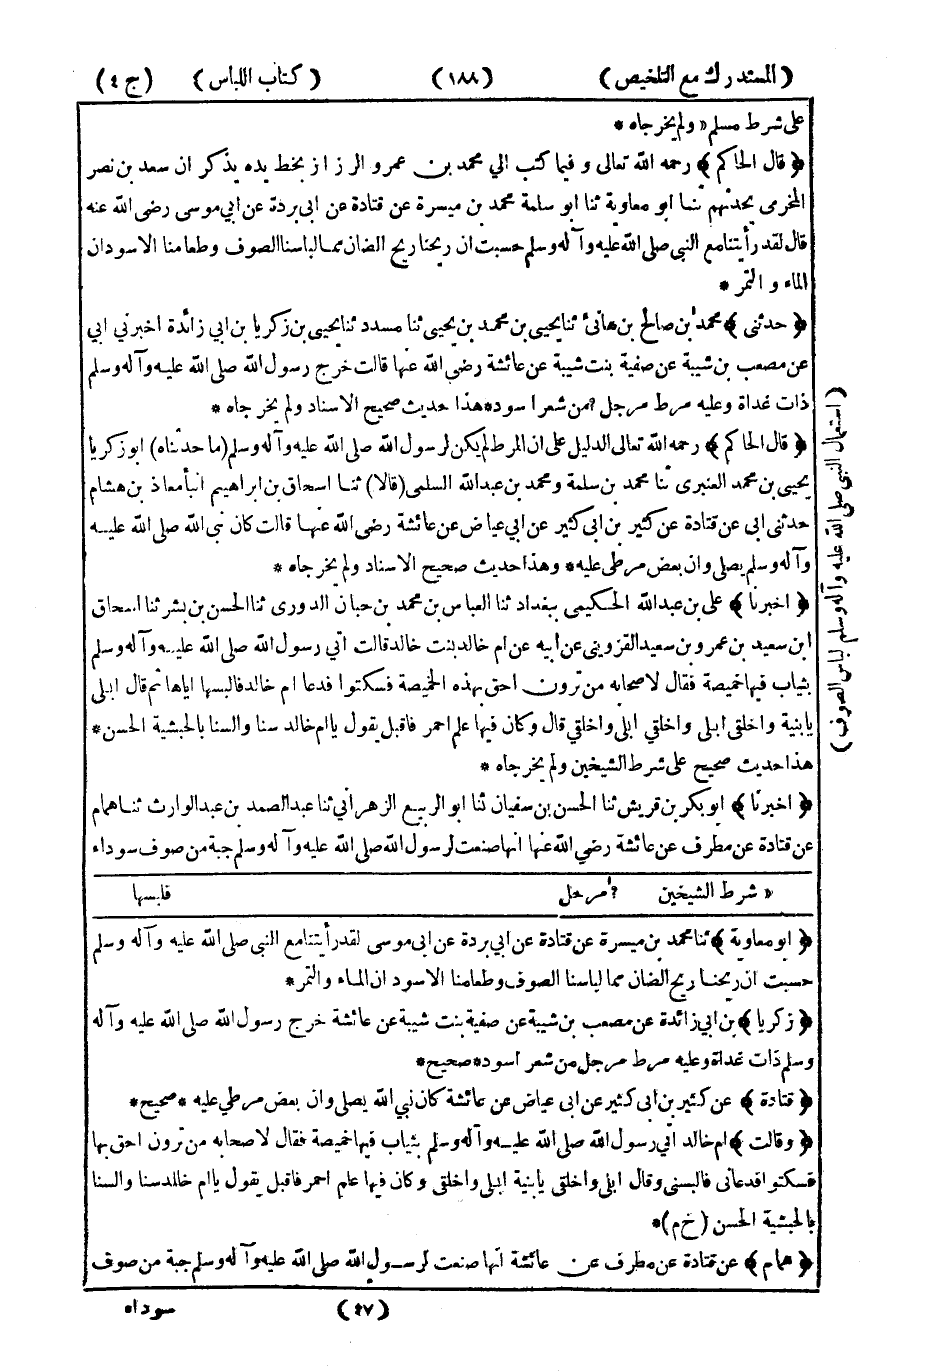 (المستدرك مع التلخيص) (١٨٨) (كتاب اللباس) (ج ٤)
على شرط مسلم « ولم يخرجاه *
﴿ قال الحاكم ﴾ رحمه الله تعالى و فيما كتب الي محمد بن عمرو الرزاز بخط يده يذكر ان سعد بن نصر
المخرمى يحدثهم ثنا ابو معاوية ثنا ابو سلمة محمد بن ميسرة عن قتادة عن ابى بردة عن ابي موسى رضى الله عنه
قال لقد رأيتنا مع النبي صلى الله عليه وآله وسلم حسبت ان ريحنا ريح الضان مما لباسنا الصوف وطعامنا الاسودان
الماء و التمر *
﴿ حدثنى ﴾ محمد بن صالح بن هانئ ثنا يحيى بن محمد بن يحيى ثنا مسدد ثنا يحيى بن زكريا بن ابي زائدة اخبرني ابي
عن مصعب بن شيبة عن صفية بنت شيبة عن عائشة رضي الله عنها قالت خرج رسول الله صلى الله عليه وآله وسلم
ذات غداة وعليه مرط مرجل ? من شعر اسود * هذا حديث صحيح الاسناد ولم يخرجاه *
﴿ قال الحاكم ﴾ رحمه الله تعالى الدليل على ان المرط لم يكن لرسول الله صلى الله عليه وآله وسلم (ما حدثناه) ابو زكريا
يحيى بن محمد العنبرى ثنا محمد بن سلمة ومحمد بن عبدالله السلمى (قالا) ثنا اسحاق بن ابراهيم انبأ معاذ بن هشام
حدثنى ابى عن قتادة عن كثير بن ابى كثير عن ابي عياض عن عائشة رضى الله عنها قالت كان نبي الله صلى الله عليه
وآله وسلم يصلى وان بعض مرطى عليه * وهذا حديث صحيح الاسناد ولم يخرجاه *
﴿ اخبرنا ﴾ على بن عبدالله الحكيمى ببغداد ثنا العباس بن محمد بن حبان الدورى ثنا الحسن بن بشر ثنا اسحاق
ابن سعيد بن عمرو بن سعيد القزوينى عن ابيه عن ام خالد بنت خالد قالت اتي رسول الله صلى الله عليه وآله وسلم
بثياب فيها خميصة فقال لاصحابه من ترون احق بهذه الخميصة فسكتوا فدعا ام خالد فالبسها اياها ثم قال ابلى
يا بنية واخلقى ابلى واخلقي ابلى واخلقي قال وكان فيها علم احمر فاقبل يقول يا ام خالد سنا والسنا بالحبشية الحسن *
هذا حديث صحيح على شرط الشيخين ولم يخرجاه *
﴿ اخبرنا ﴾ ابو بكر بن قريش ثنا الحسن بن سفيان ثنا ابو الربيع الزهراني ثنا عبدالصمد بن عبدالوارث ثنا همام
عن قتادة عن مطرف عن عائشة رضي الله عنها انها صنعت لرسول الله صلى الله عليه وآله وسلم جبة من صوف سوداء
(استعمال النبي صلى الله عليه وآله وسلم لباس الصوف)
فلبسها
« شرط الشيخين ? مرحل
﴿ ابو معاوية ﴾ ثنا محمد بن ميسرة عن قتادة عن ابي بردة عن ابى موسى لقد رأيتنا مع النبي صلى الله عليه وآله وسلم
حسبت ان ريحنا ريح الضان مما لباسنا الصوف وطعامنا الاسودان الماء والتمر *
﴿ زكريا ﴾ بن ابي زائدة عن مصعب بن شيبة عن صفية بنت شيبة عن عائشة خرج رسول الله صلى الله عليه وآله
وسلم ذات غداة وعليه مرط مرجل من شعر اسود * صحيح *
﴿ قتادة ﴾ عن كثير بن ابى كثير عن ابى عياض عن عائشة كان نبي الله يصلى وان بعض مرطي عليه * صحيح *
﴿ وقالت ﴾ ام خالد اتي رسول الله صلى الله عليه وآله وسلم بثياب فيها خميصة فقال لاصحابه من ترون احق بها
فسكتوا فدعانى فالبسنى وقال ابلى واخلقى يا بنية ابلى واخلقى وكان فيها علم احمر فاقبل يقول يا ام خالد سنا والسنا
بالحبشية الحسن (خ م) *
﴿ همام ﴾ عن قتادة عن مطرف عن عائشة انها صنعت لرسول الله صلى الله عليه وآله وسلم جبة من صوف
(٤٧) سوداء